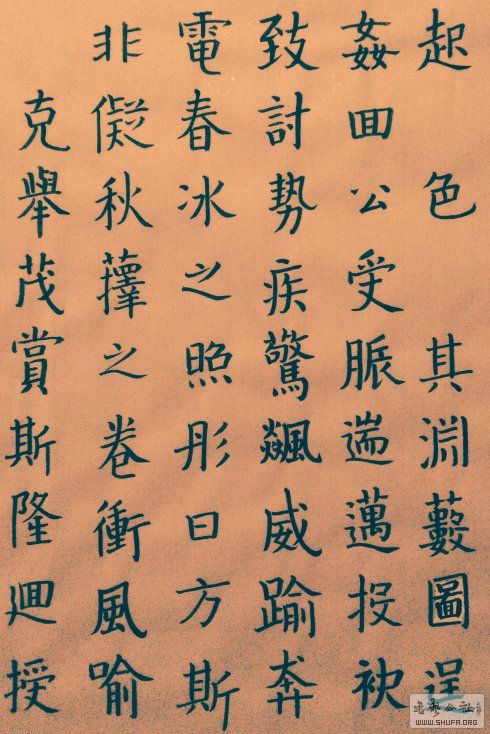 起色其淵藪圖逞
姦囬公受脤遄邁投袂
致討勢疾驚飆威踰奔
電春冰之照彤日方斯
非儗秋蘀之卷衝風喻
克舉茂賞斯隆迴授
WWW.SHUFA.ORG